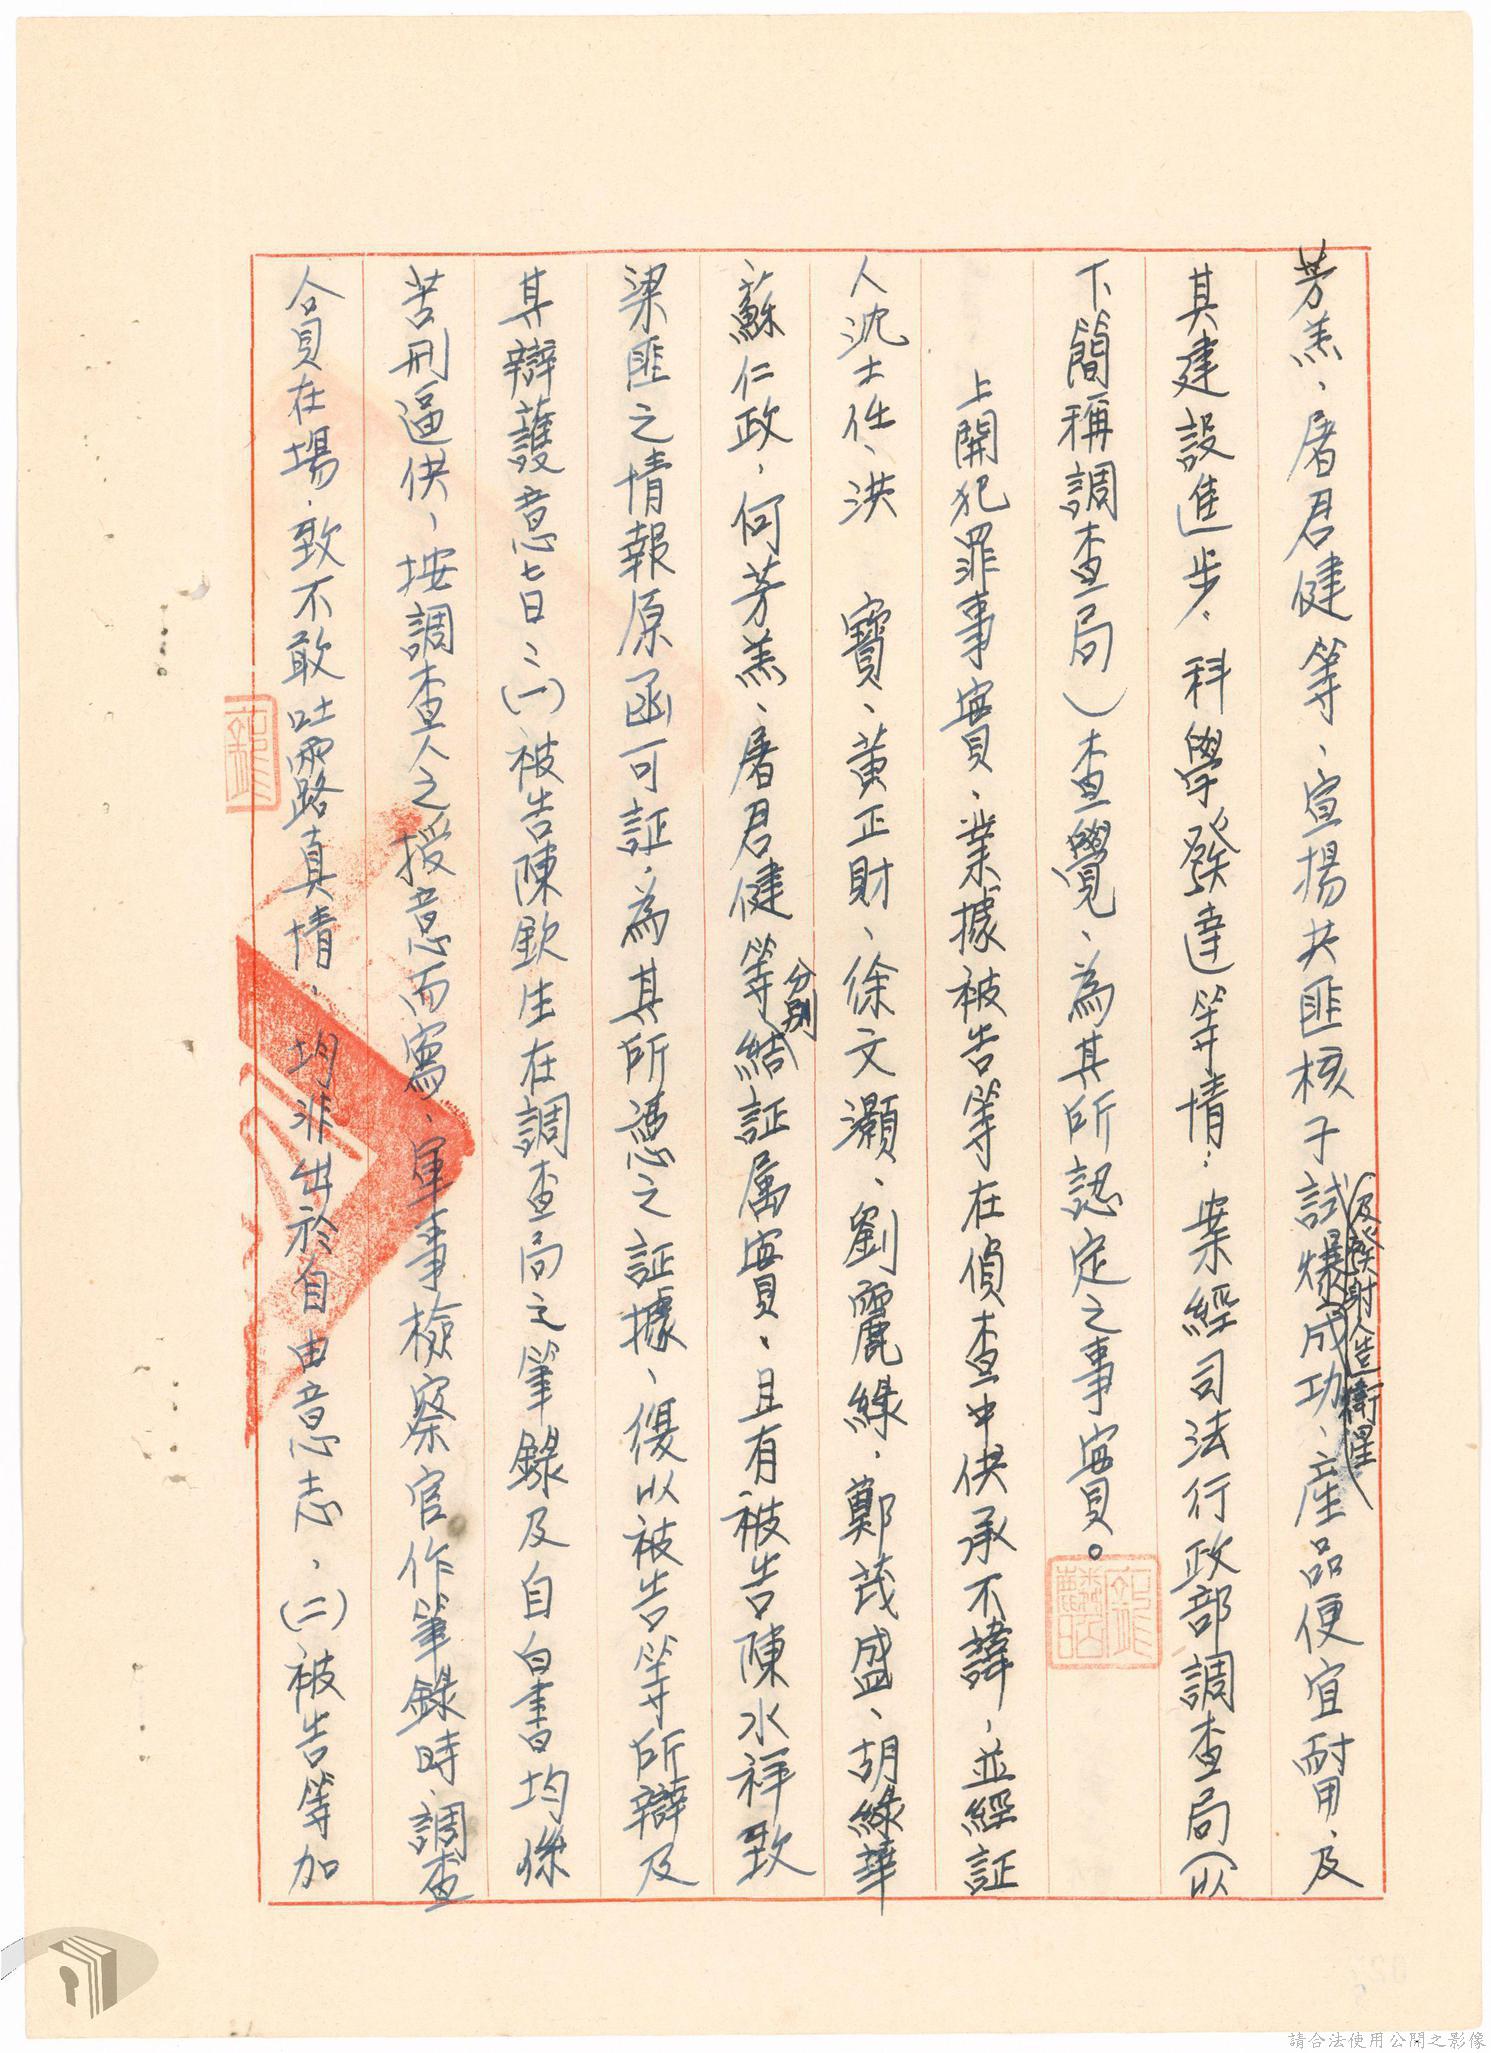 芳羔、屠君健等、宣揚共匪核子試爆成功、產品便宜耐用、及
及發射人造衛星
其建設進步、科學發達等情：案經司法行政部調查局（以
下簡稱調查局）查覺、為其所認定之事實。
上開犯罪事實、業據被告等在偵查中供承不諱、並經証
人沈士任、洪　寶、黃正財、徐文灝、劉麗綠、鄭茂盛、胡綠華
、蘇仁政、何芳羔、屠君健等結証属實、且有被告陳水祥致
分別
梁匪之情報原函可証、為其所憑之証據、復以被告等所辯及
其辯護意旨：（一）被告陳欽生在調查局之筆錄及自白書均係
苦刑逼供、按調查人之授意而寫、軍事檢察官作筆錄時、調查
人員在場、致不敢吐露真情、均非出於自由意志、（二）被告等加
請合法使用公開之影像